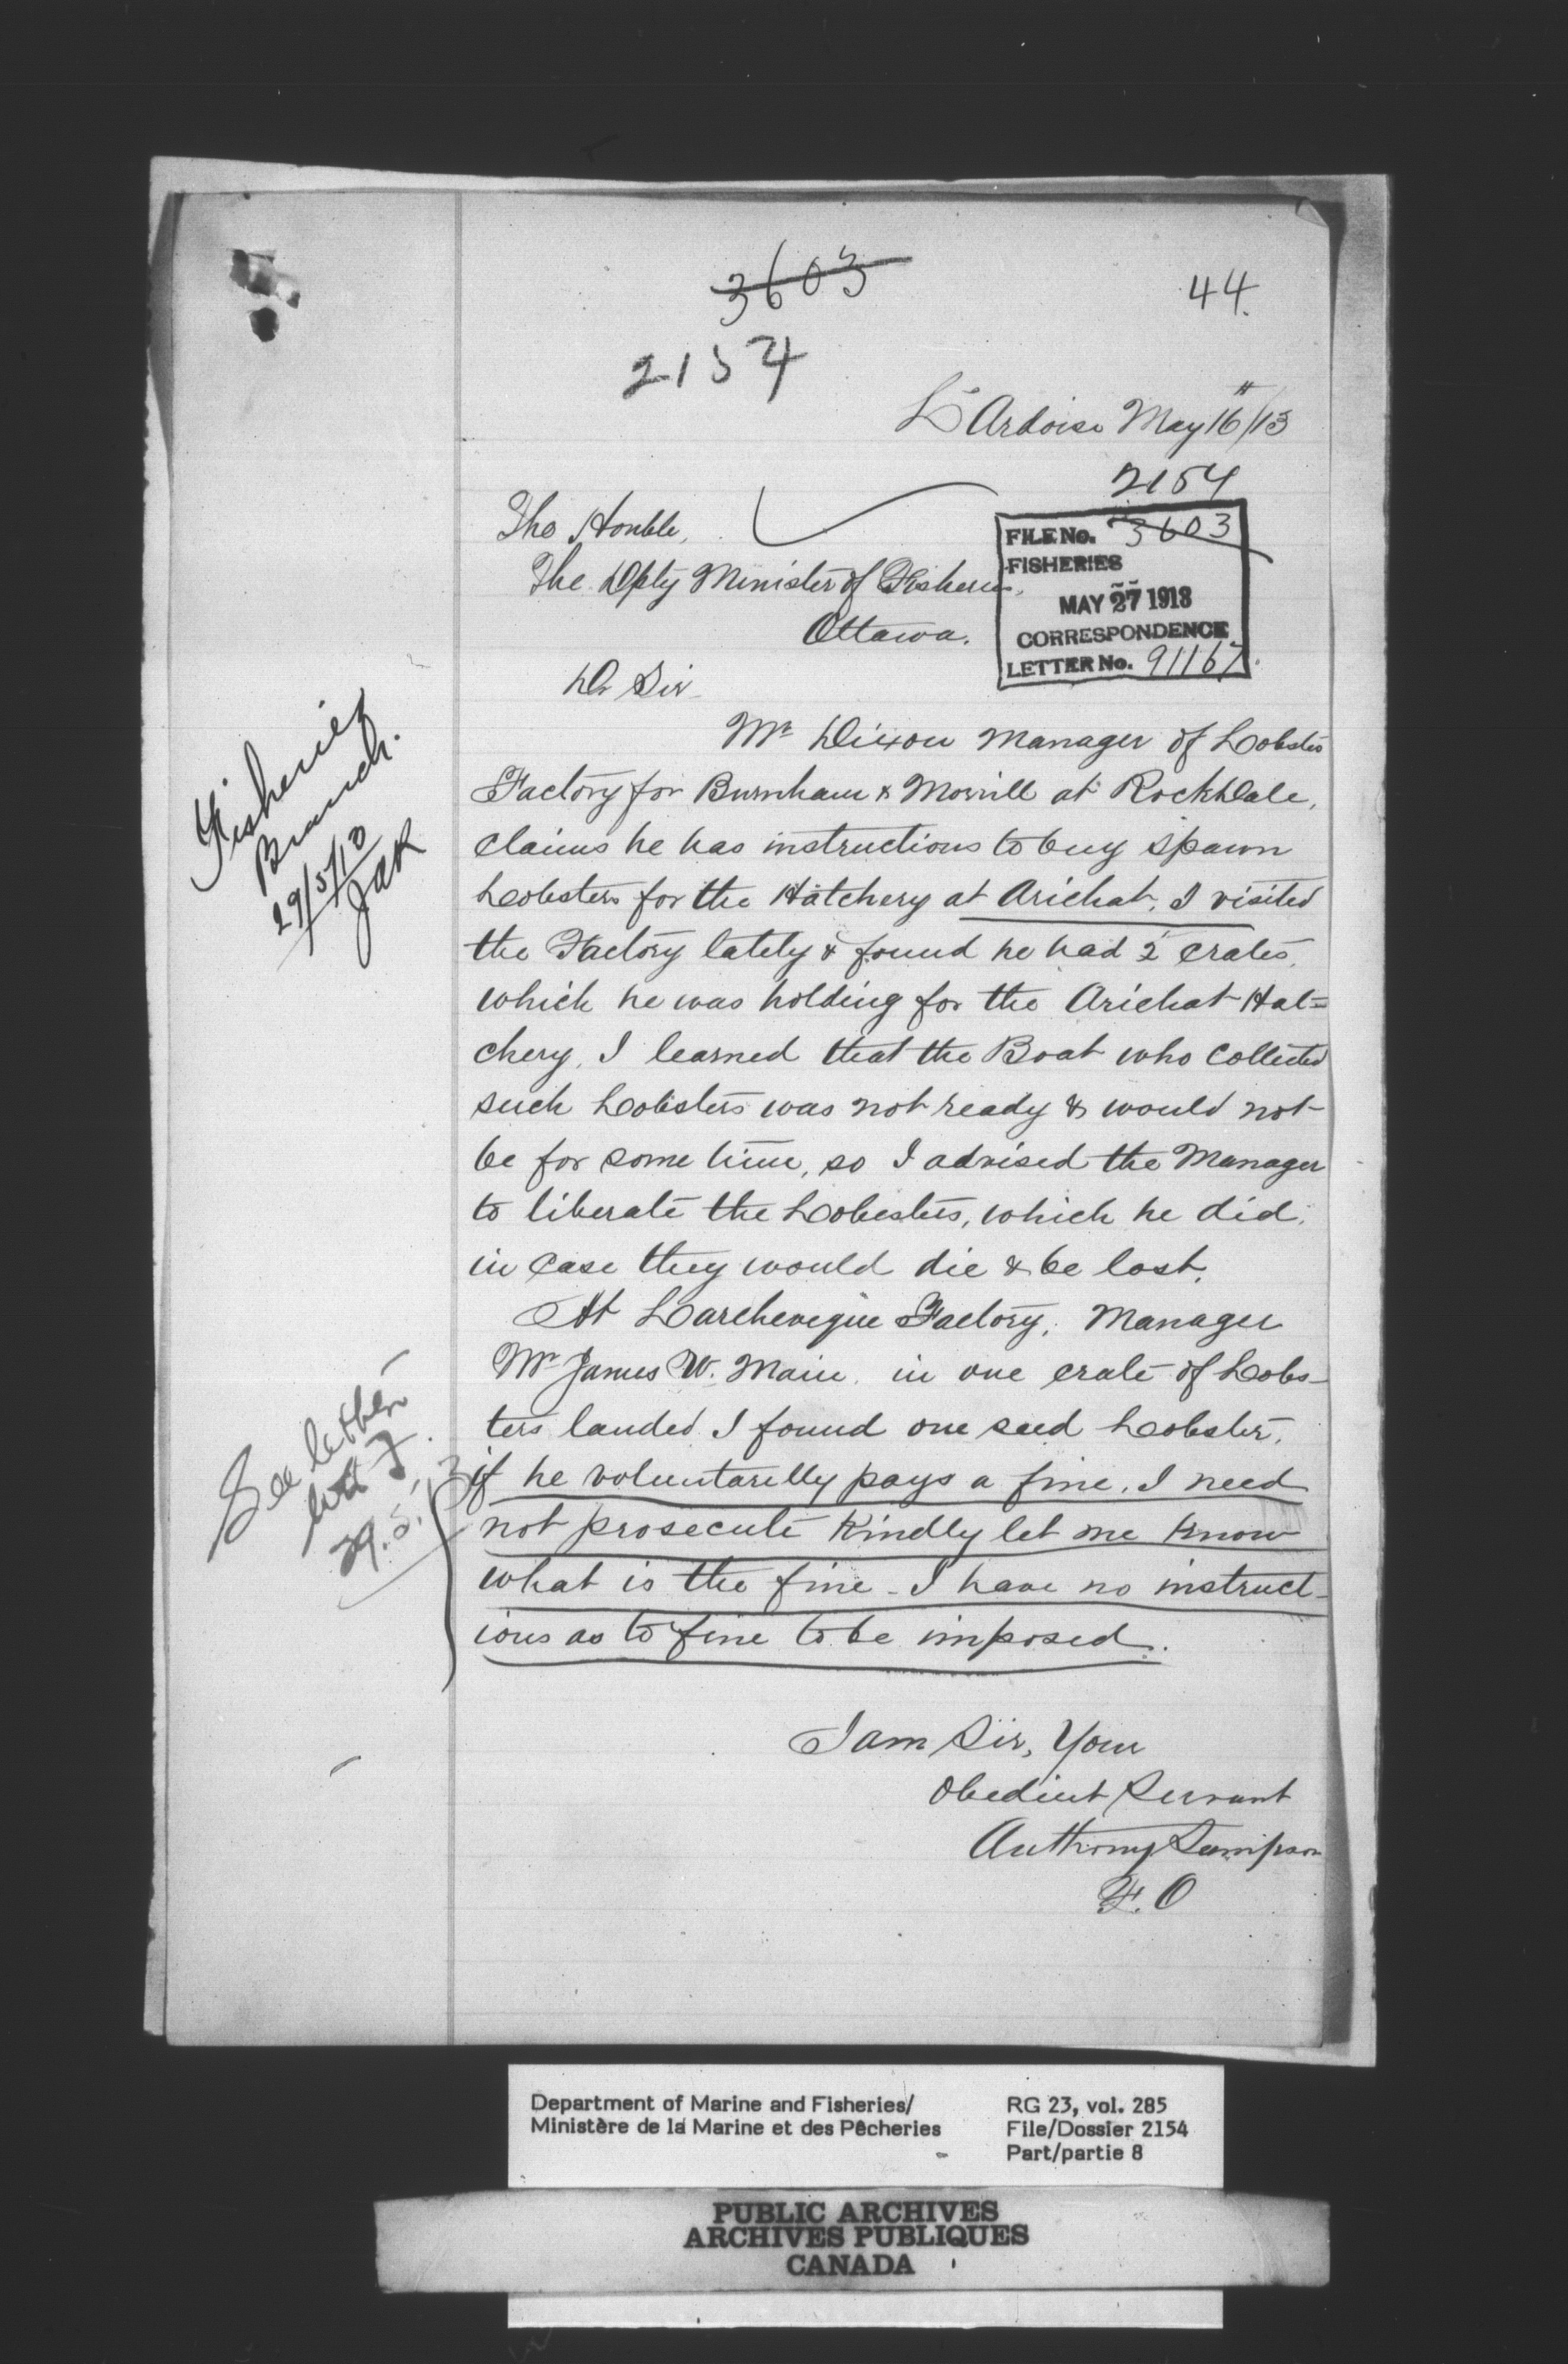 3603
44.
2154
L'Ardoise May 16/13
2154
The Honble,
FILE No. 3603
The Dpty Minister of Fisheries,
FISHERIES
MAY 27 1913
Ottawa.
CORRESPONDENCE
LETTER No. 91167.
Dr Sir
Mr Dixon Manager of Lobster
Factory for Burnham & Morrill at RockDale,
claims he has instructions to buy spawn
Lobsters for the Hatchery at Arichat, I visited
the Factory lately & found he had 2 crates,
which he was holding for the Arichat Hat=
chery, I learned that the Boat who collected
such Lobsters was not ready & would not
be for some time, so I advised the Manager
to liberate the Lobesters, which he did,
in case they would die & be lost.
At Larcheveque Factory, Manager
Mr James W. Main in one crate of Lobs-
ters landed I found one seed Lobster,
if he voluntarelly pays a fine, I need
not prosecute Kindly let me know
what is the fine - I have no instruct-
ions as to fine to be imposed.
I am Sir, Your
Obedient Servant
Anthony Sampson
F. O
Fisheries
Branch.
29/5/13
JAR
See letter
29.5.13
Department of Marine and Fisheries/
Ministère de la Marine et des Pêcheries
RG 23, vol. 285
File/Dossier 2154
Part/partie 8
PUBLIC ARCHIVES
ARCHIVES PUBLIQUES
CANADA